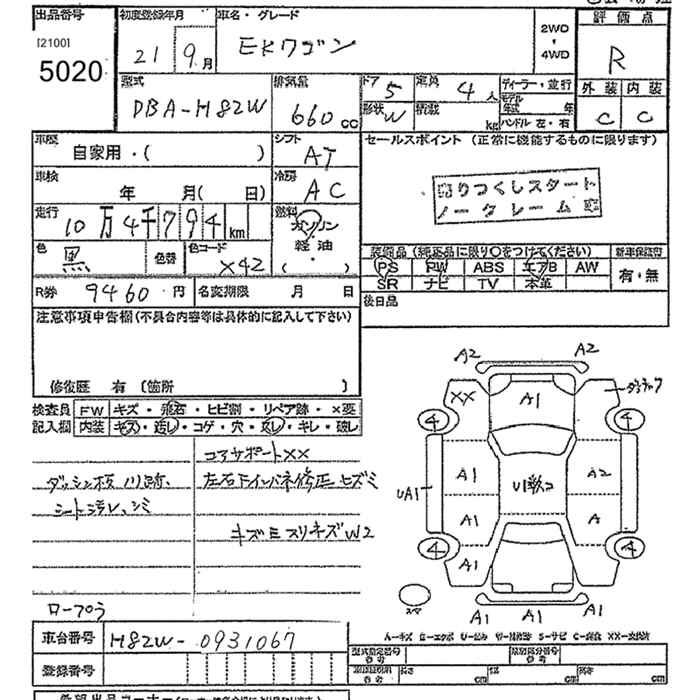 出品番号
[2100]
5020
初度登録年月
21 9月
車名・グレード
EKワゴン
2WD
・
4WD
評価点
R
外装 内装
C C
型式
DBA-H82W
排気量
660cc
ドア 5
定員 4人
形状 W
積載 kg
ディーラー・並行
モデル年式 年
ハンドル 左・右
車歴
自家用・( )
シフト
AT
車検
年 月( 日)
冷房
AC
走行
10万4千794km
燃料
ガソリン
・
軽油
色
黒
色替
色コード
X42
R券 9460円
名変期限 月 日
セールスポイント (正常に機能するものに限ります)
売りつくしスタート
ノークレーム
装備品(純正品に限り○をつけてください)
新車保証書
PS PW ABS エアB AW
SR ナビ TV 本革
有・無
後日品
注意事項申告欄(不具合内容等は具体的に記入して下さい)
修復歴 有 (箇所 )
検査員
記入欄
FW キズ・飛石・ヒビ割・リペア跡・×要
内装 キズ・汚レ・コゲ・穴・戻し・キレ・破レ
コアサポートXX
ダッシュ板ノリ跡、
シート汚レ、シミ
左右下インパネ修正セズミ
キズミスリキズW2
ロープロう
A2 A2
XX A1
4 4
A1 A2
UA1
A1 A
4 4
スペア
A1 A1 A1
車台番号 H82W-0931067
登録番号
型式指定番号
参考
類別区分番号
参考
長さ cm
幅 cm
高さ cm